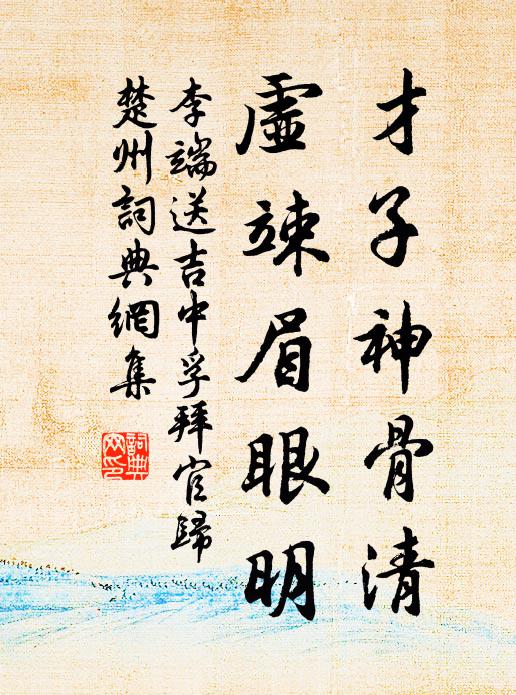 才子神骨清
虛竦眉眼明
李端送吉中孚拜官歸
楚州詞典網集
詞典網印